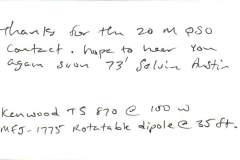 Thanks for the 20 M QSO
Contact. hope to hear you
again soon 73' Selvin Austin
Kenwood TS 870 @ 100 W
MFJ-1775 Rotatable dipole @ 35 ft.